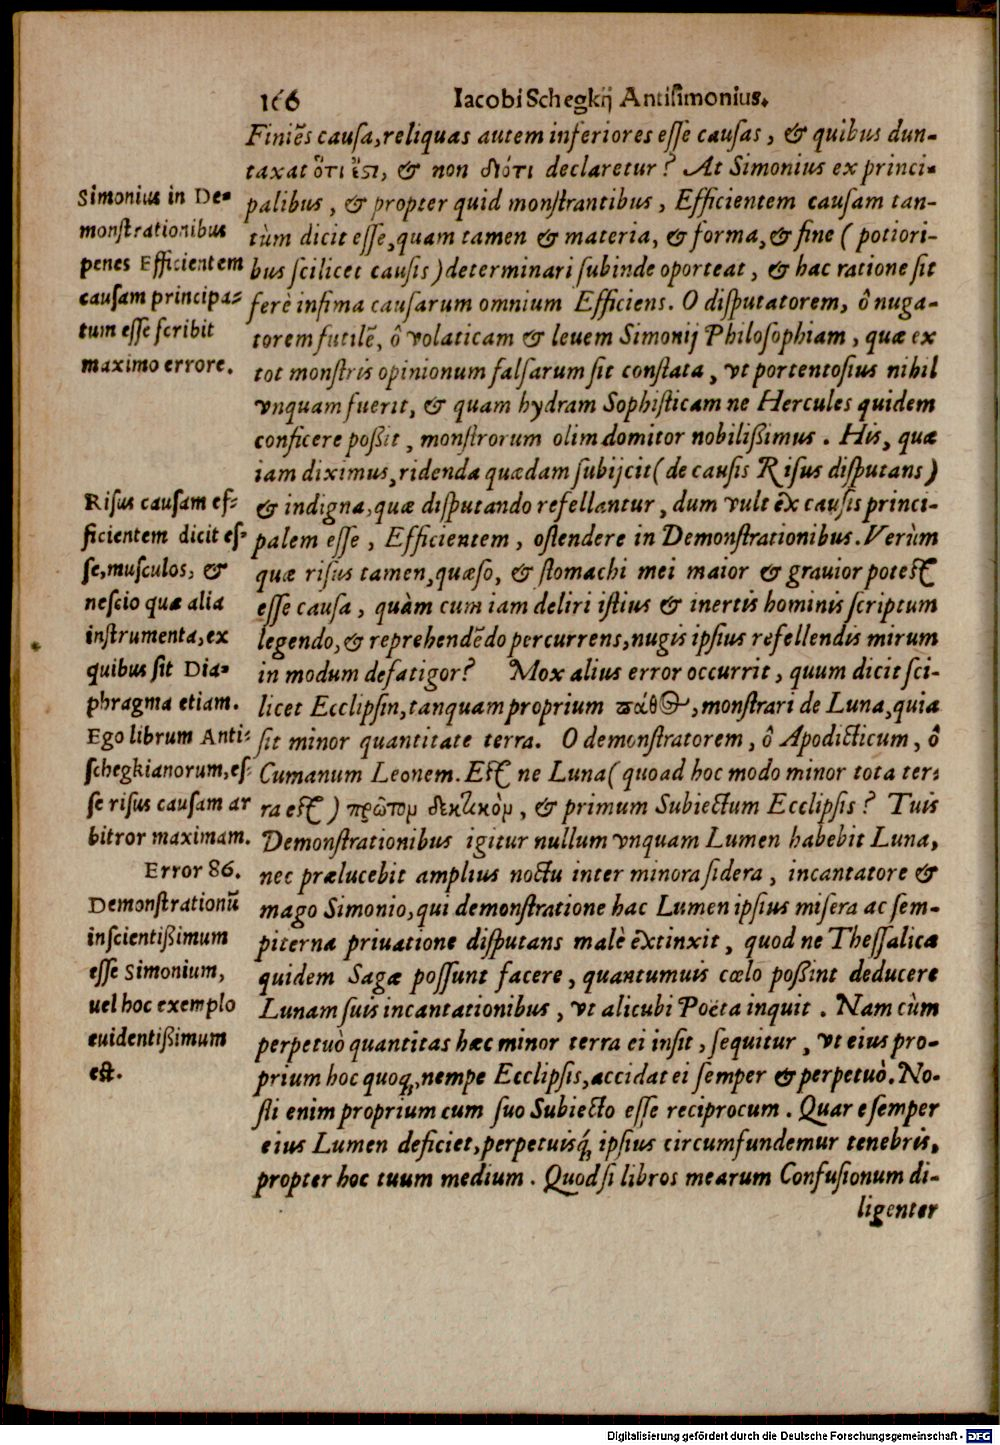 166 Iacobi Schegkij Antisimonius.
Finiẽs causa, reliquas autem inferiores esse causas, & quibus dun-
taxat ὅτι ἔστι, & non διότι declaretur? At Simonius ex princi-
palibus, & propter quid monstrantibus, Efficientem causam tan-
tùm dicit esse, quam tamen & materia, & forma, & fine (potiori-
bus scilicet causis) determinari subinde oporteat, & hac ratione sit
ferè infima causarum omnium Efficiens. O disputatorem, ô nuga-
torem futilẽ, ô volaticam & leuem Simonij Philosophiam, quæ ex
tot monstris opinionum falsarum sit constata, vt portentosius nihil
vnquam fuerit, & quam hydram Sophisticam ne Hercules quidem
conficere poßit, monstrorum olim domitor nobilißimus. His, quæ
iam diximus, ridenda quædam subijcit (de causis Risus disputans)
& indigna, quæ disputando refellantur, dum vult ex causis princi-
palem esse, Efficientem, ostendere in Demonstrationibus. Verùm
quæ risus tamen, quæso, & stomachi mei maior & grauior potest
esse causa, quàm cum iam deliri istius & inertis hominis scriptum
legendo, & reprehendẽdo percurrens, nugis ipsius refellendis mirum
in modum defatigor? Mox alius error occurrit, quum dicit sci-
licet Ecclipsin, tanquam proprium πάθος, monstrari de Luna, quia
sit minor quantitate terra. O demonstratorem, ô Apodicticum, ô
Cumanum Leonem. Est ne Luna (quoad hoc modo minor tota ter-
ra est) πρῶτομ δεκτικὸμ, & primum Subiectum Ecclipsis? Tuis
Demonstrationibus igitur nullum vnquam Lumen habebit Luna,
nec prælucebit amplius noctu inter minora sidera, incantatore &
mago Simonio, qui demonstratione hac Lumen ipsius misera ac sem-
piterna priuatione disputans malè extinxit, quod ne Thessalicæ
quidem Sagæ possunt facere, quantumuis cœlo poßint deducere
Lunam suis incantationibus, vt alicubi Poëta inquit. Nam cùm
perpetuò quantitas hæc minor terra ei insit, sequitur, vt eius pro-
prium hoc quoq;, nempe Ecclipsis, accidat ei semper & perpetuò. No-
sti enim proprium cum suo Subiecto esse reciprocum. Quare semper
eius Lumen deficiet, perpetuisq́; ipsius circumfundemur tenebris,
propter hoc tuum medium. Quod si libros mearum Confusionum di-
ligenter
Simonius in De-
monstrationibus
penes Efficientem
causam principa-
tum esse scribit
maximo errore.
Risus causam ef-
ficientem dicit es-
se, musculos, &
nescio quæ alia
instrumenta, ex
quibus sit Dia-
phragma etiam.
Ego librum Anti-
schegkianorum, es-
se risus causam ar
bitror maximam.
Error 86.
Demonstrationũ
inscientißimum
esse Simonium,
uel hoc exemplo
euidentißimum
est.
Digitalisierung gefördert durch die Deutsche Forschungsgemeinschaft - DFG